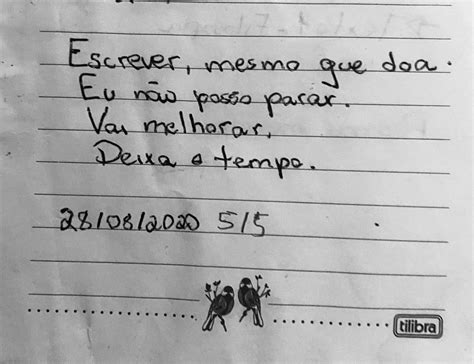 Escrever, mesmo que doa.
Eu não posso parar.
Vai melhorar,
Deixa o tempo.
28/08/2020 5/5
tilibra